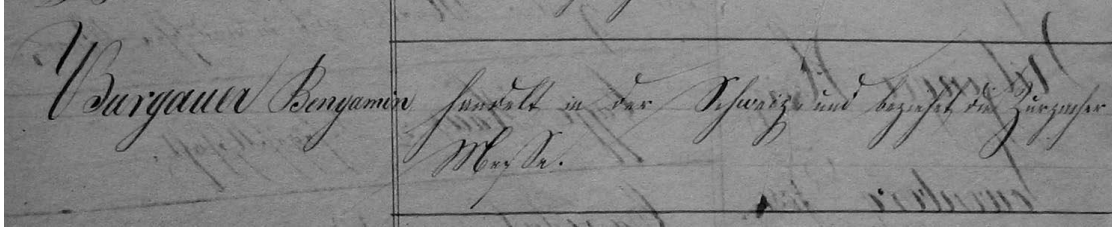 Burgauer Benyamin handelt in der Schweiz und beziehet die Zurzacher
Messe.